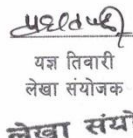 यज्ञ तिवारी
लेखा संयोजक
लेखा संयो